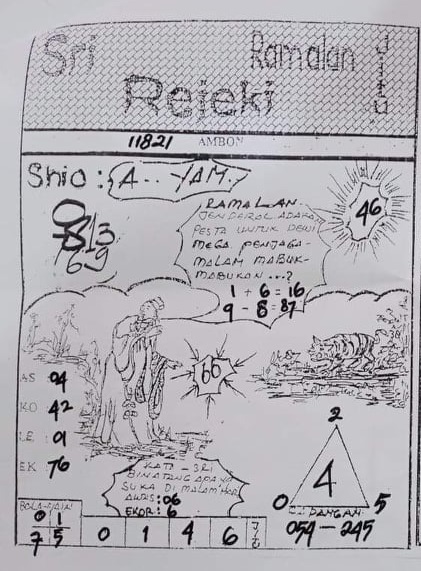 Sri
Ramalan
Rejeki
11821 AMBON
Shio : A.. YAM.
8 13
69
RAMALAN
JENDERAL ADAKAN
PESTA UNTUK DEWI
MEGA PENJAGA-
MALAM MABUK-
MABUKAN ...?
1 + 6 = 16
9 - 8 = 87
46
66
AS 04
KO 42
LE : 01
EK 76
KATA - SRI
BINATANG APA YG
SUKA DI MALAM HARI
AWAS : 06
EKOR : 6
2
4
0 5
DANGAN
054 - 245
0 1
7 5
0 1 4 6